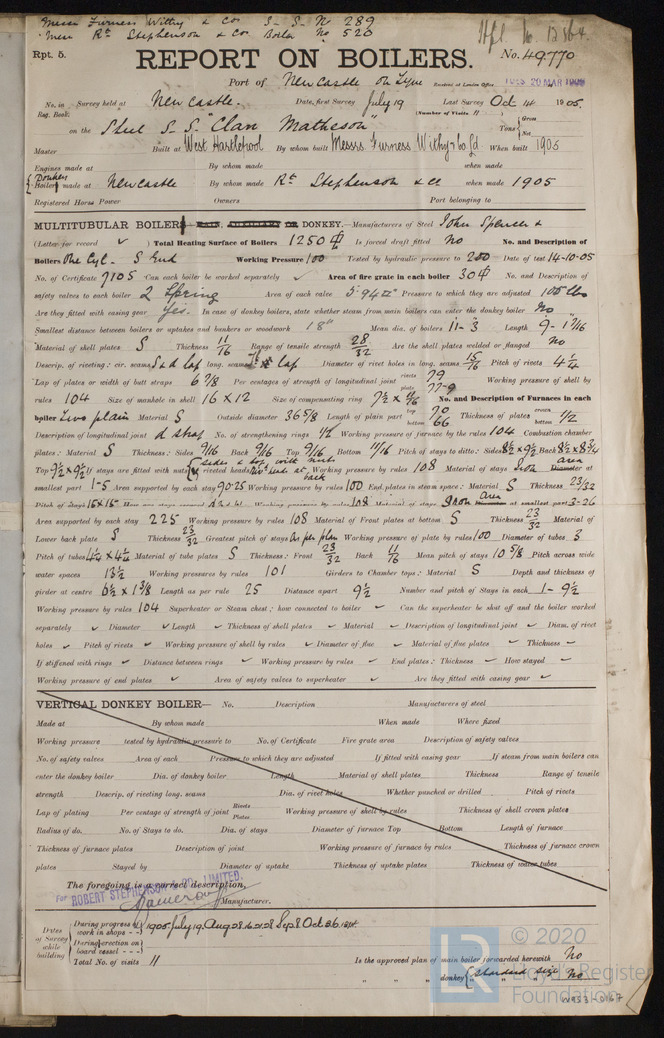 Messrs Furness Withy & Cos S. S. No 289
Messrs Rt Stephenson & Co. Boiler No 520
Rpt. 5.
REPORT ON BOILERS.
No. 49770
Port of Newcastle on Tyne Received at London Office TUES. 20 MAR 1906
No. in Survey held at Newcastle. Date, first Survey July 19 Last Survey Oct 14 1905
Reg. Book. (Number of Visits 11)
on the Steel S. S. "Clan Matheson" Tons { Gross Net
Master Built at West Hartlepool By whom built Messrs Furness Withy & Co Ld When built 1905
Engines made at By whom made when made
Donkey Boiler made at Newcastle By whom made Rt Stephenson & Co when made 1905
Registered Horse Power Owners Port belonging to
MULTITUBULAR BOILERS MAIN, AUXILIARY OR DONKEY.—Manufacturers of Steel John Spencer &
(Letter for record ✓ ) Total Heating Surface of Boilers 1250 Is forced draft fitted No No. and Description of
Boilers One Cyl. S End Working Pressure 100 Tested by hydraulic pressure to 200 Date of test 14-10-05
No. of Certificate 7105 Can each boiler be worked separately ✓ Area of fire grate in each boiler 30 No. and Description of
safety valves to each boiler 2 Spring Area of each valve 5.94 Pressure to which they are adjusted 105 lbs
Are they fitted with easing gear Yes. In case of donkey boilers, state whether steam from main boilers can enter the donkey boiler No
Smallest distance between boilers or uptakes and bunkers or woodwork 18" Mean dia. of boilers 11-3 Length 9-1 9/16
Material of shell plates S Thickness 11/16 Range of tensile strength 28/32 Are the shell plates welded or flanged no
Descrip. of riveting: cir. seams S & d Lap long. seams Lap Diameter of rivet holes in long. seams 15/16 Pitch of rivets 4 1/4
Lap of plates or width of butt straps 6 7/8 Per centages of strength of longitudinal joint rivets 79 plate 77.9 Working pressure of shell by
rules 104 Size of manhole in shell 16 x 12 Size of compensating ring 7 1/2 x 9/16 No. and Description of Furnaces in each
boiler Two plain Material S Outside diameter 36 5/8 Length of plain part top 70 bottom 66 Thickness of plates crown bottom 1/2
Description of longitudinal joint d strap No. of strengthening rings 1/2 Working pressure of furnace by the rules 104 Combustion chamber
plates: Material S Thickness: Sides 9/16 Back 9/16 Top 9/16 Bottom 11/16 Pitch of stays to ditto: Sides 8 1/2 x 9 1/2 Back 8 1/2 x 8 3/4
Top 9 1/2 x 9 1/2 If stays are fitted with nuts or riveted heads sides & top with nuts back Working pressure by rules 108 Material of stays Iron area Diameter at
smallest part 1-5 Area supported by each stay 90.25 Working pressure by rules 100 End plates in steam space: Material S Thickness 23/32
Pitch of stays 15 x 15 How are stays secured Working pressure by rules 108 Material of stays Iron area Diameter at smallest part 3-26
Area supported by each stay 225 Working pressure by rules 108 Material of Front plates at bottom S Thickness 23/32 Material of
Lower back plate S Thickness 23/32 Greatest pitch of stays As per plan Working pressure of plate by rules 100 Diameter of tubes 3
Pitch of tubes 4 1/4 x 4 1/4 Material of tube plates S Thickness: Front 23/32 Back 11/16 Mean pitch of stays 10 5/8 Pitch across wide
water spaces 13 1/2 Working pressures by rules 101 Girders to Chamber tops: Material S Depth and thickness of
girder at centre 6 1/2 x 1 3/8 Length as per rule 25 Distance apart 9 1/2 Number and pitch of Stays in each 1 - 9 1/2
Working pressure by rules 104 Superheater or Steam chest; how connected to boiler ✓ Can the superheater be shut off and the boiler worked
separately ✓ Diameter ✓ Length ✓ Thickness of shell plates ✓ Material ✓ Description of longitudinal joint ✓ Diam. of rivet
holes ✓ Pitch of rivets ✓ Working pressure of shell by rules ✓ Diameter of flue ✓ Material of flue plates ✓ Thickness ✓
If stiffened with rings ✓ Distance between rings ✓ Working pressure by rules ✓ End plates: Thickness ✓ How stayed ✓
Working pressure of end plates ✓ Area of safety valves to superheater ✓ Are they fitted with easing gear ✓
VERTICAL DONKEY BOILER— No. Description Manufacturers of steel
Made at By whom made When made Where fixed
Working pressure tested by hydraulic pressure to No. of Certificate Fire grate area Description of safety valves
No. of safety valves Area of each Pressure to which they are adjusted If fitted with easing gear If steam from main boilers can
enter the donkey boiler Dia. of donkey boiler Length Material of shell plates Thickness Range of tensile
strength Descrip. of riveting long. seams Dia. of rivet holes Whether punched or drilled Pitch of rivets
Lap of plating Per centage of strength of joint Rivets Plates Working pressure of shell by rules Thickness of shell crown plates
Radius of do. No. of Stays to do. Dia. of stays Diameter of furnace Top Bottom Length of furnace
Thickness of furnace plates Description of joint Working pressure of furnace by rules Thickness of furnace crown
plates Stayed by Diameter of uptake Thickness of uptake plates Thickness of water tubes
The foregoing is a correct description,
For ROBERT STEPHENSON & CO. LIMITED.
Manufacturer.
Dates of Survey while building
During progress of work in shops - - 1905 July 19. Aug 2 8 16 21 28 Sep 8 Oct 3 6 13 14.
During erection on board vessel - - -
Total No. of visits 11
Is the approved plan of main boiler forwarded herewith No
" " " donkey { Standard size " " No
© 2020
Lloyd's Register
Foundation
W953-0167